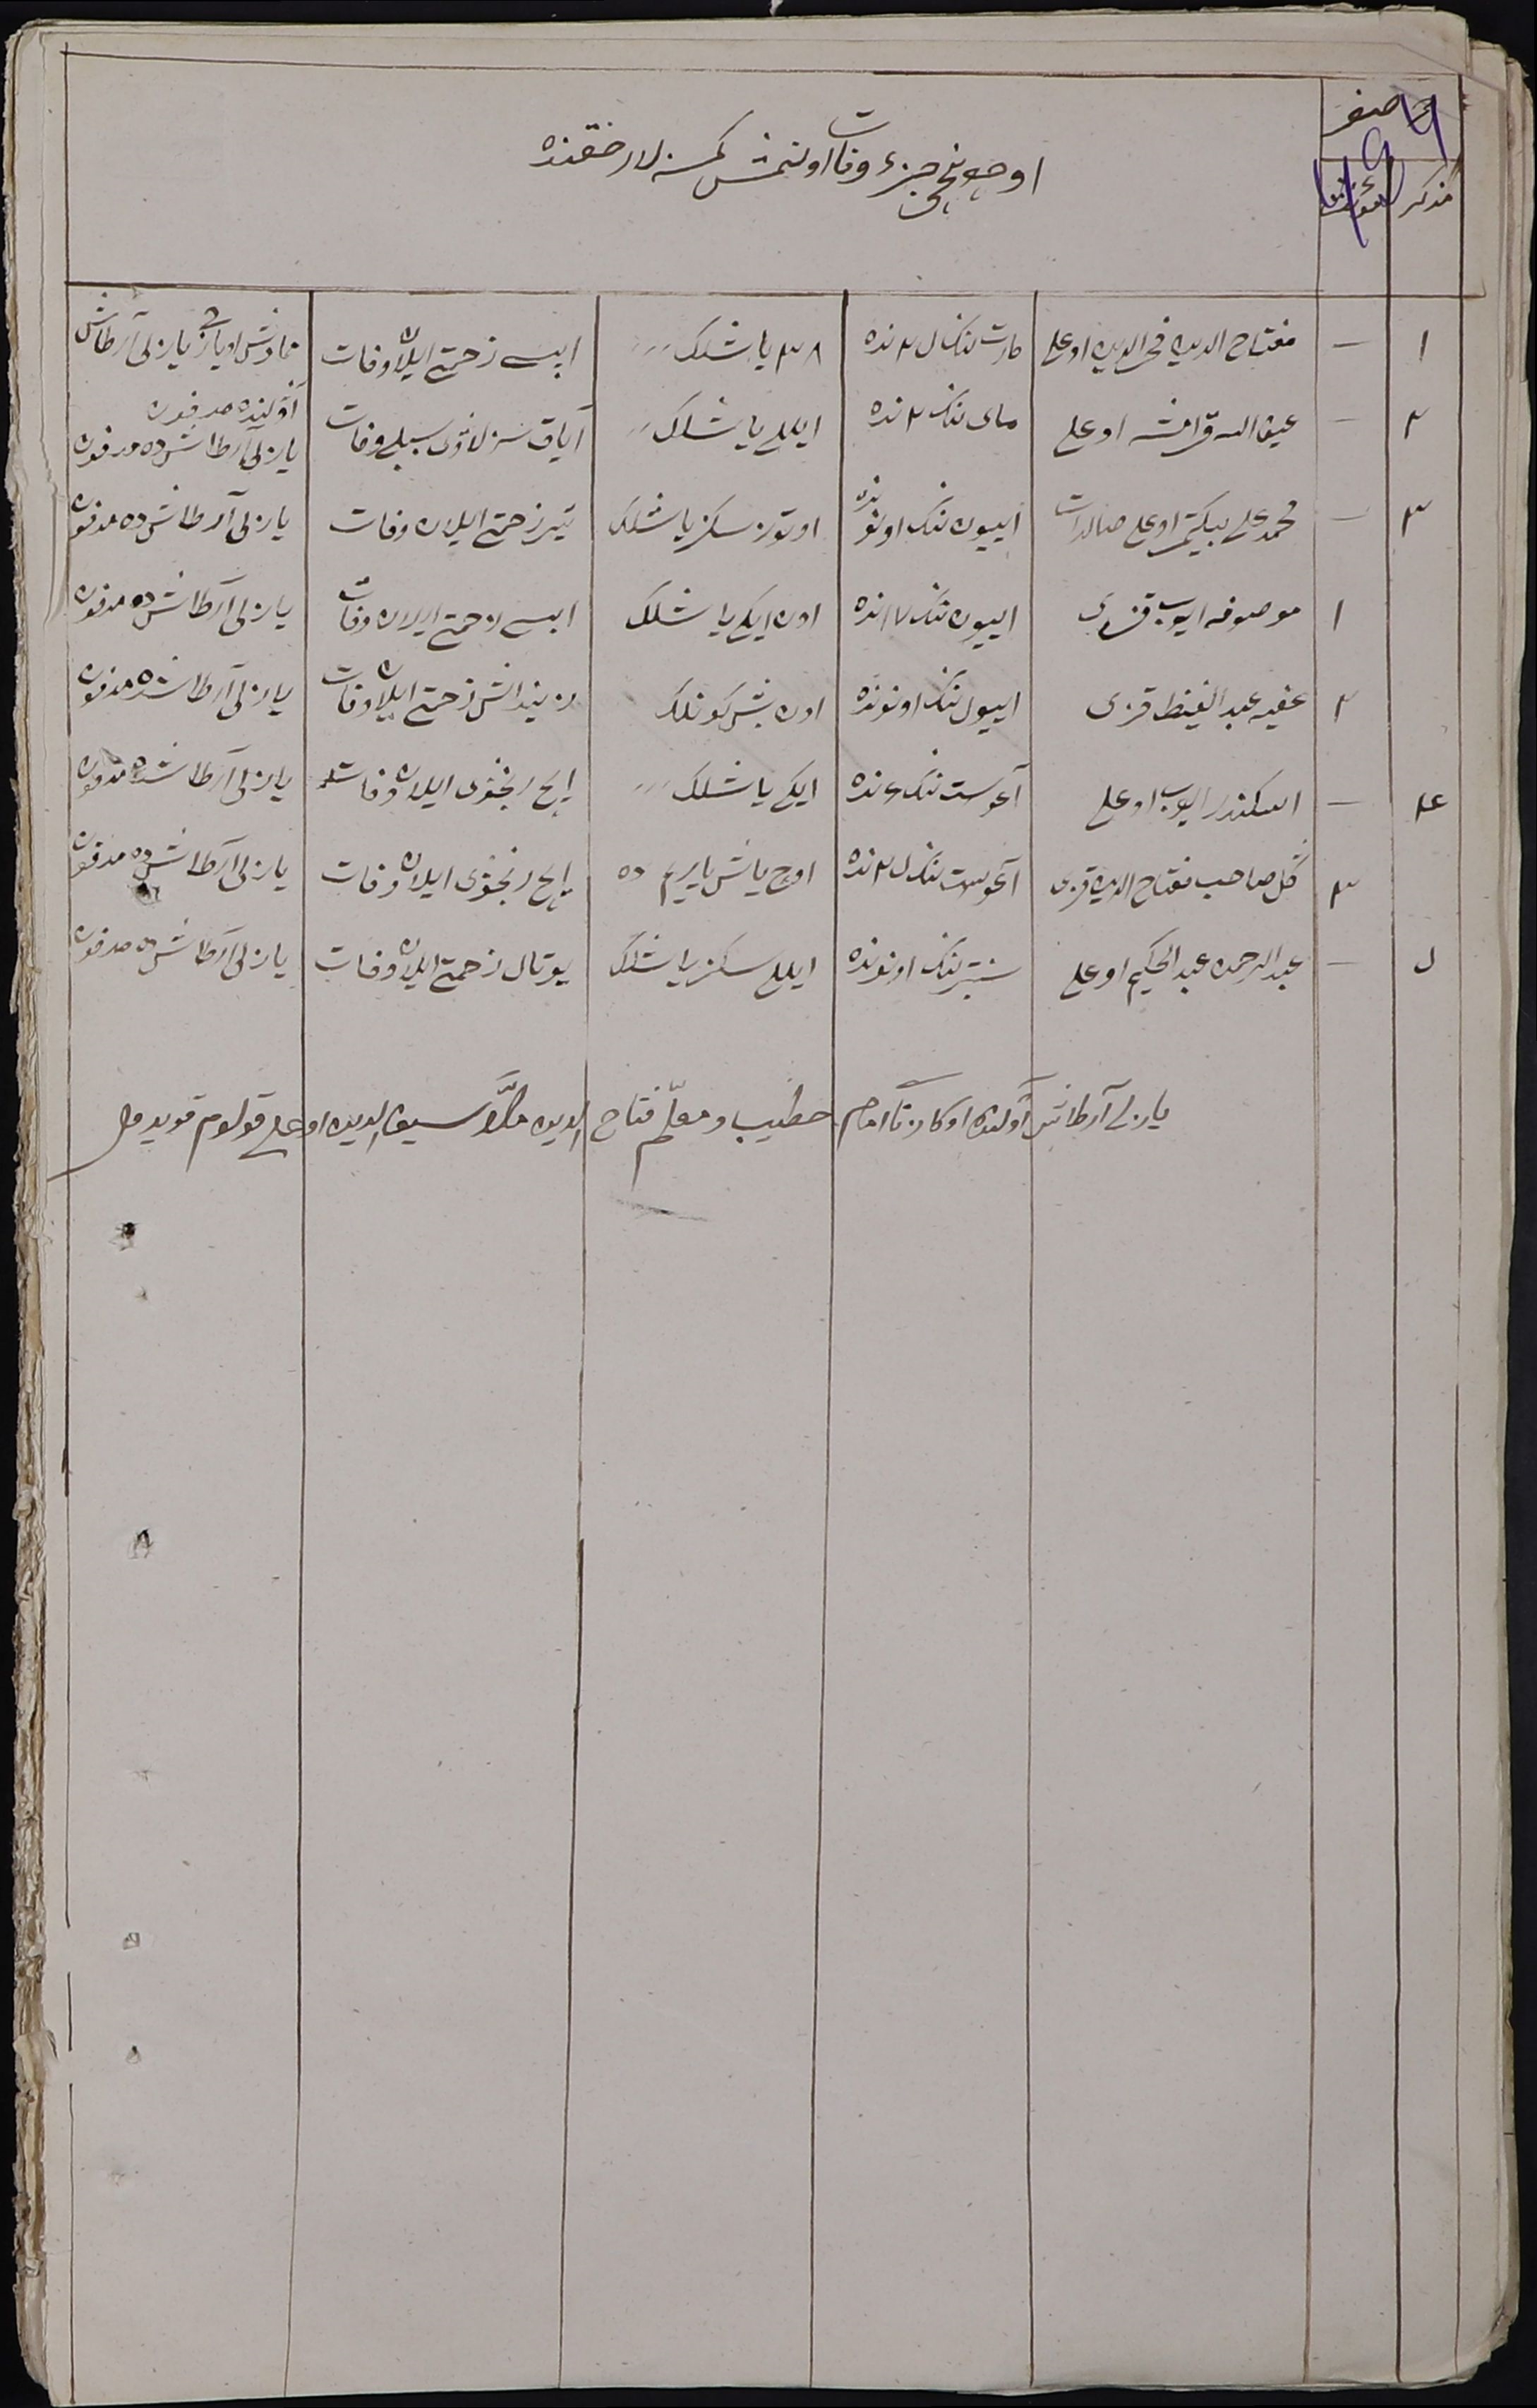 اوچونچی جزء وفات اولنمش کمسنه لار حقنده
مذکر مؤنث
۱ — مفتاح الدین فخرالدین اوغلی مارت ننک ۲۵ نده ۳۸ یاشلک ایسی زحمتی ایلان وفات یازلی آرطاش
اولنده مدفون
۲ — قرامشه اوغلی مای ننک ۲ نده ایللی یاشلک آیاق سزلاؤی سببلی وفات یازلی آرطاش ده مدفون
۳ — محمد علی بیکتمر اوغلی اییون ننک اونونده اوتوز سکز یاشلک تیر زحمتی ایلان وفات یازلی آرطاش ده مدفون
۱ موصوفه ایوب قزی اییون ننک ۱۷ نده اون ایکی یاشلک ایسی زحمتی ایلان وفات یازلی آرطاش ده مدفون
۲ عفیه قزی اییول ننک اونونده اون بش کونلک زحمتی ایلان وفات یازلی آرطاش ده مدفون
۴ — اسکندر ایوب اوغلی آغوست ننک ۴ نده ایکی یاشلک ایچ رنجوی ایلان وفات یازلی آرطاش ده مدفون
۳ گل صاحب مفتاح الدین قزی آغوست ننک ۲۵ نده اوچ یاش یاریم ده ایچ رنجوی ایلان وفات یازلی آرطاش ده مدفون
۵ — عبدالرحمن عبدالحکیم اوغلی سنتبر ننک اونونده ایللی سکز یاشلک یوتال زحمتی ایلان وفات یازلی آرطاش ده مدفون
یازلی آرطاش آولننک اوکازنا امام خطیب و معلّم فتاح الدین ملّا سیف الدین اوغلی قولوم قویدم